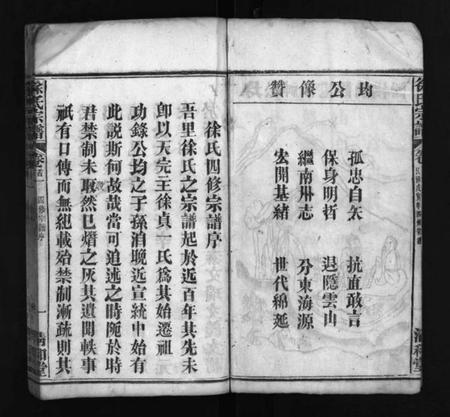 均公像贊
孤忠自矢 抗直敢言
保身明哲 退隱雲山
繼南州志 分東海源
宏開基緒 世代綿延
清和堂
徐氏宗譜
徐氏四修宗譜序
吾里徐氏之宗譜起於近百年其先未
卽以天完王徐貞一氏爲其始遷祖
功錄公均之子孫洎晚近宣統中始有
此說斯何故哉當可追述之時阨於時
君禁制未敢然已熸之灰其遺聞軼事
祇有口傳而無紀載始禁制漸疏則其
徐氏宗譜
卷首
四修宗譜序
清和堂